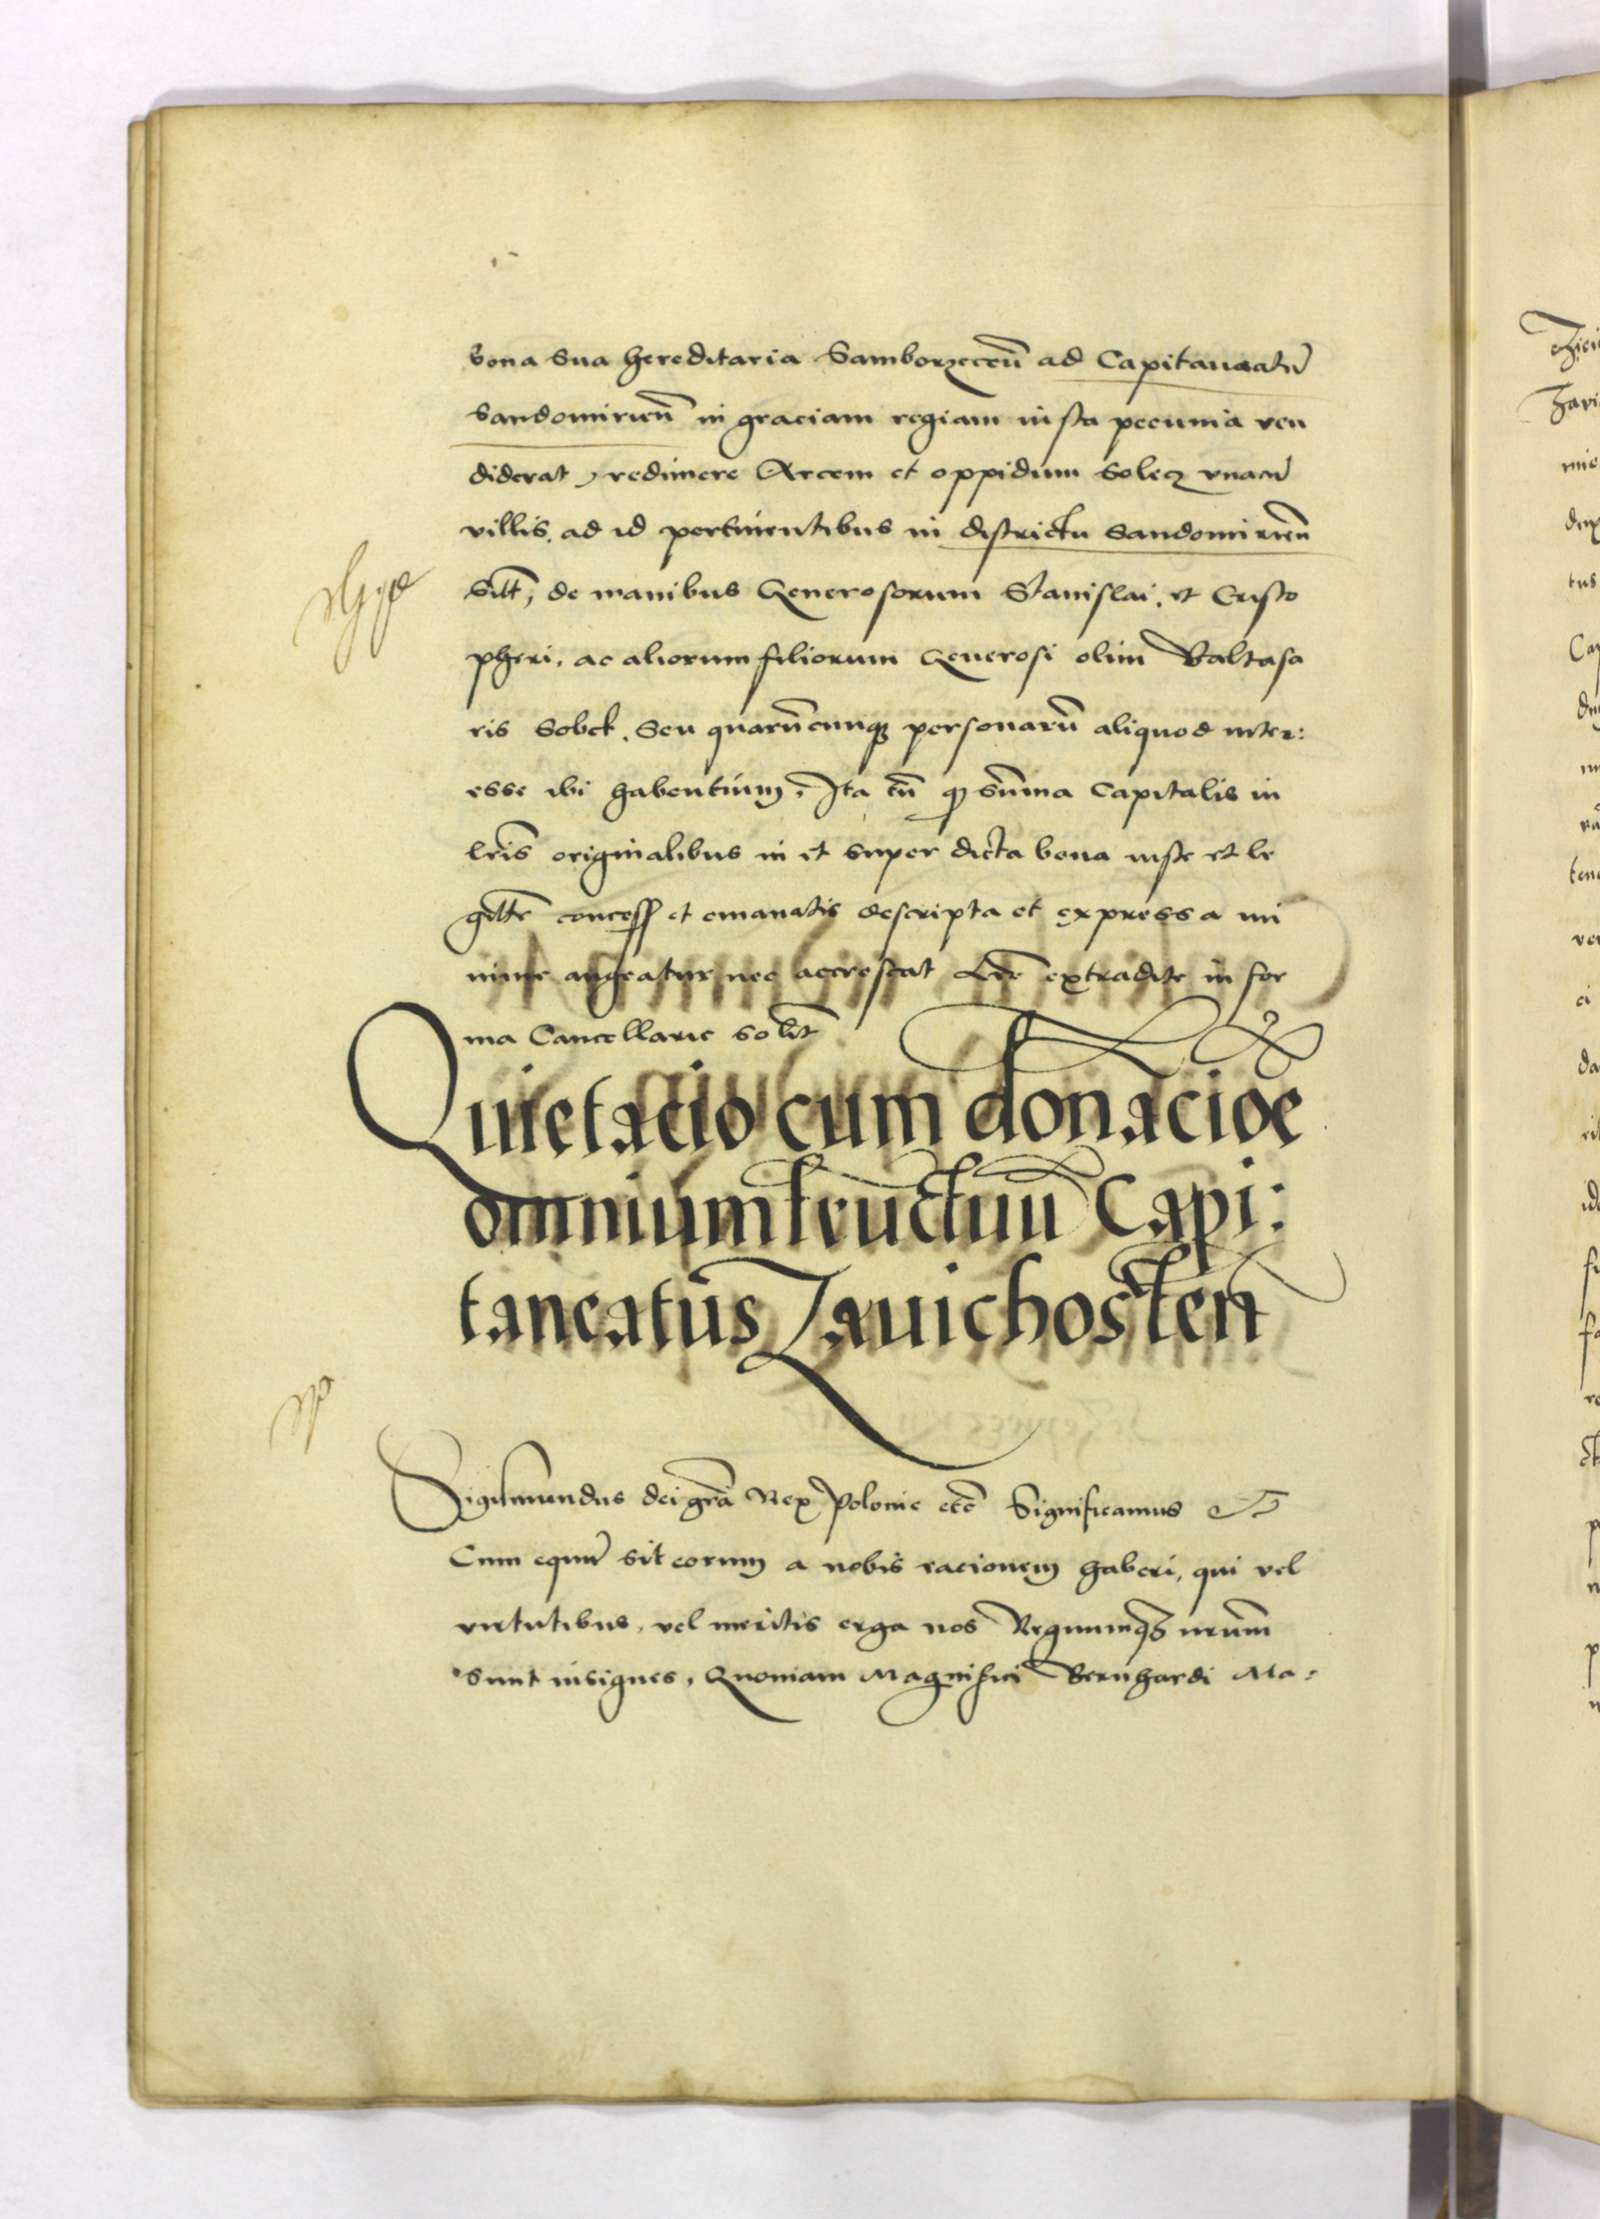 bona sua hereditaria Samborzeceñ ad Capitaneatū
Sandomirieñ in graciam regiam iusta pecunia ven
diderat, redimere Arcem et oppidum Solecz vnacū
villis ad id pertinentibus in districtu Sandomirieñ
sitt, de manibus Generosorum Stanislai, et Cristo
pheri, ac aliorum filiorum Generosi olim Baltasa
ris Sobek, seu quarūcunque personarū aliquod inter:
esse ibi habentium, Ita tn̄ q sūma Capitalis in
lris originalibus in et super dicta bona iuste et le
gittē concess et emanatis descripta et expressa mi
nime augeatur nec accrescat Lrē extradite in for
ma Cancellarie solit
Quietacio cum donacioē
omnium fructuū Capi:
taneatus Zauichosteñ
Sigismundus dei grā Rex Polonie etc̄ Significamus
Cum equū sit eorum a nobis racionem haberi, qui vel
virtutibus, vel meritis erga nos Regnumq3 nrum
sunt insignes, Quoniam Magnifici Bernhardi Ma: